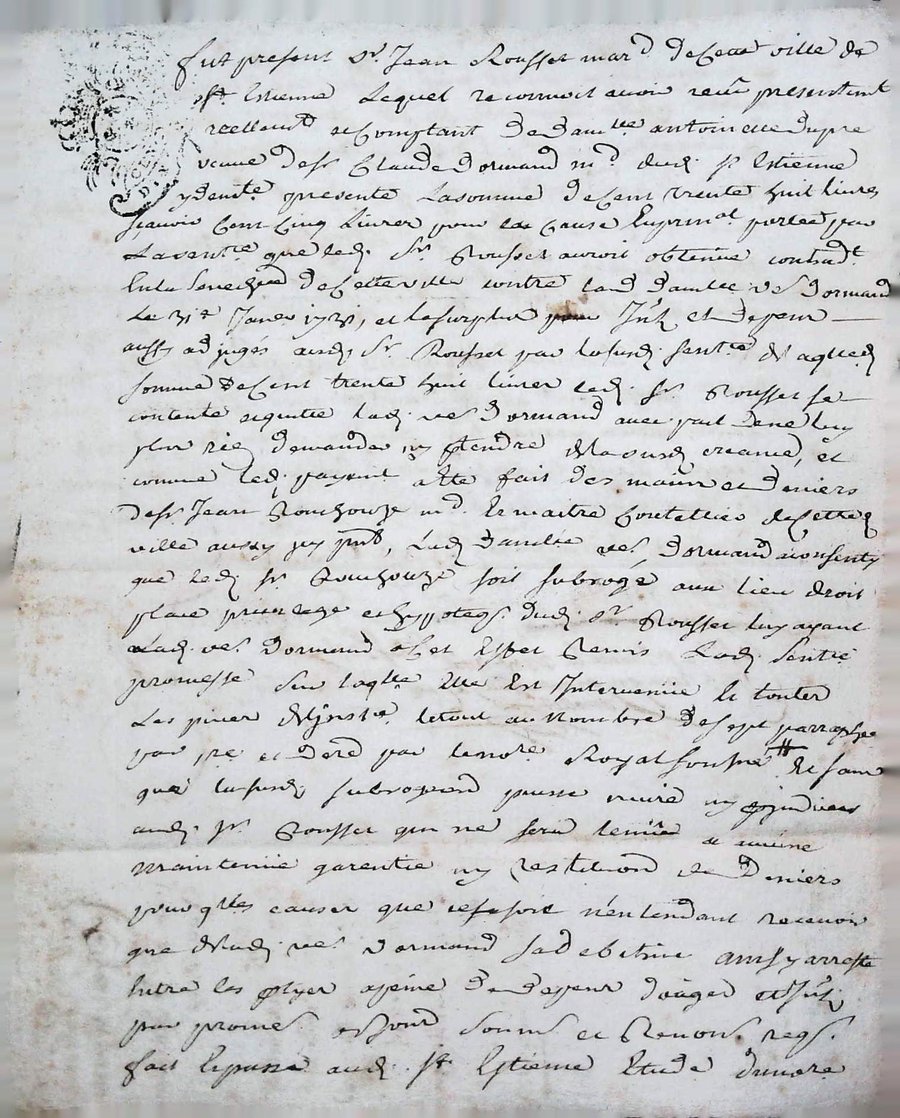 fut present Sr. Jean Rousset mard de Cette ville de
st. Estienne Lequel reconnoit avoir receu presentemt
reellemt et Comptant de damlle antoinette dupre
veuve de sr. Claude dormand md. dud. st. Estienne
ydemte presente La somme de Cent trente huit livres
sçavoir Cent Cinq Livres pour la Cause En prinal portée par
La sentce que led. Sr. Rousset auroit obtenue contradt
En la Senechée de Cette ville contre lad damlle ve. dormand
Le 31e Janer et le surplus pour Inst et depens
aussy adjugés aud. Sr. Rousset par la susd. sentce de laquelle
somme de Cent trente huit livres led. Sr. Rousset se
contente et quitte lad. ve. dormand avec pact de ne luy
plus rien demander ny ptendre de la susd. creance, et
comme led. payemt a Eté fait des mains et deniers
de sr. Jean md. Et maitre Coutellier de Cette
ville aussy pnt, Lad damlle ve. dormand a consenty
que led. sr. soit subrogé aux lieu droit
place privilege et hypoteqs. dud. Sr. Rousset luy ayant
lad. ve. dormand a Cet Effet Remis Lad. sentce
promesse Sur laqlle Elle Est Intervenue Et toutes
Les pieces d'Instce. le tout au Nombre de sept parraphée
par pre et derè par le nore. Royal soussné Et sans
que la susd. subrogaon puisse nuire ny pjudicier
aud. Sr. Rousset qui ne sera tenu
de aucune
maintenue garentie ny restituon de deniers
pour qlles causes que ce soit n'entendant recevoir
que de lad. ve. dormand sa debitrice ainsy arresté
Entre les ptyes a peine de depens domges et Inst
par promes. obligaon soumis et Renons. reqs.
fait Et passé aud. st Estienne Etude du nore